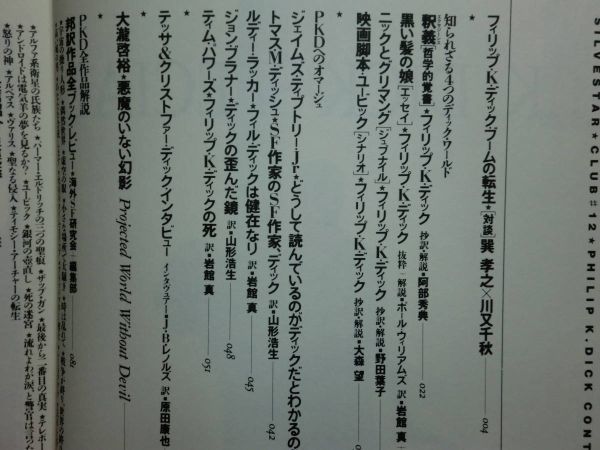 SILVESTAR★CLUB#12★PHILIP K. DICK CONT
フィリップ・K・ディック・ブームの転生★[対談]巽 孝之×川又千秋 004
★
知られざる4つのディック・ワールド
釈義[哲学的覚書]★フィリップ・K・ディック 抄訳・解説・阿部秀典 022
黒い髪の娘[エッセイ]★フィリップ・K・ディック 抜粋・解説・ポール・ウィリアムズ 訳・岩館 真
ニックとグリマング[ジュブナイル]★フィリップ・K・ディック 抄訳・解説・野田葉子
映画脚本・ユービック[シナリオ]★フィリップ・K・ディック 抄訳・解説・大森 望
★
PKDへのオマージュ
ジェイムズ・ティプトリー・Jr.★どうして読んでいるのがディックだとわかるの
トマス・M・ディッシュ★SF作家のSF作家、ディック 訳・山形浩生 042
ルディー・ラッカー★フィル・ディックは健在なり 訳・岩館 真 045
ジョン・ブラナー★ディックの歪んだ鏡 訳・山形浩生 048
ティム・パワーズ・フィリップ・K・ディックの死 訳・岩館 真 051
★
テッサ&クリストファー・ディック インタビュー インタヴュアー・J・B・レノルズ 訳・原田康也
★
大瀧啓裕★悪魔のいない幻影 Projected World Without Devil
★
PKD全作品解説
邦訳作品全ブック・レビュー★海外SF研究会+編集部 081
アルファ系衛星の氏族たち★パーマー・エルドリッチの三つの聖痕★ザップ・ガン★最後から二番目の真実★テレポー
アンドロイドは電気羊の夢を見るか?★ユービック★銀河の壺直し★死の迷宮★流れよわが涙、と警官は言った
怒りの神★アルベマス★ヴァリス★聖なる侵入★ティモシー・アーチャーの転生